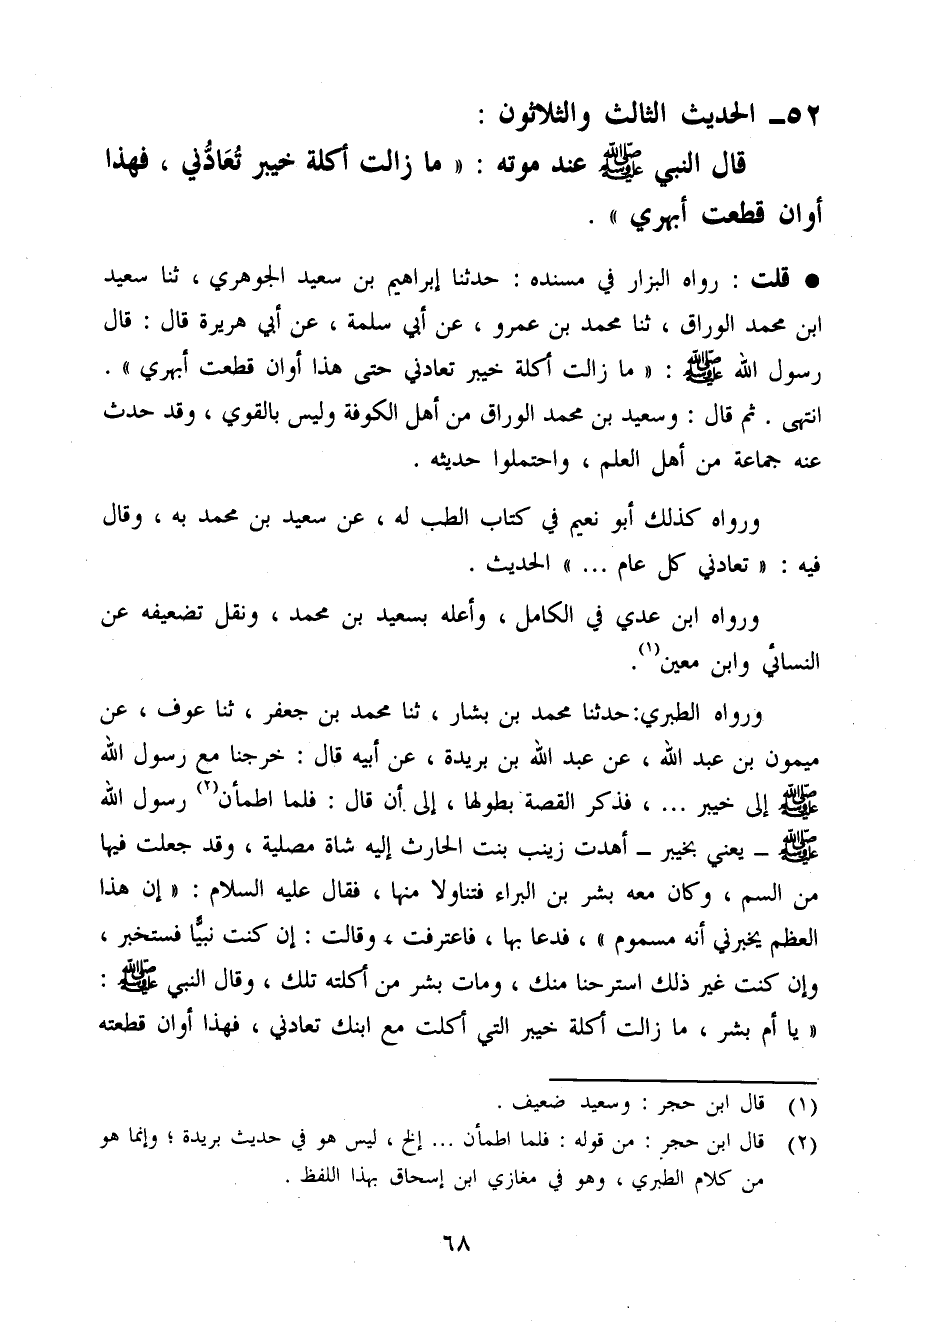 ٥٢ـ الحديث الثالث والثلاثون :
قال النبي ﷺ عند موته : « ما زالت أكلة خيبر تُعَادُّني ، فهذا
أوان قطعت أبهري » .
● قلت : رواه البزار في مسنده : حدثنا إبراهيم بن سعيد الجوهري ، ثنا سعيد
ابن محمد الوراق ، ثنا محمد بن عمرو ، عن أبي سلمة ، عن أبي هريرة قال : قال
رسول الله ﷺ : « ما زالت أكلة خيبر تعادني حتى هذا أوان قطعت أبهري » .
انتهى . ثم قال : وسعيد بن محمد الوراق من أهل الكوفة وليس بالقوي ، وقد حدث
عنه جماعة من أهل العلم ، واحتملوا حديثه .
ورواه كذلك أبو نعيم في كتاب الطب له ، عن سعيد بن محمد به ، وقال
فيه : « تعادني كل عام ... » الحديث .
ورواه ابن عدي في الكامل ، وأعله بسعيد بن محمد ، ونقل تضعيفه عن
النسائي وابن معين(١).
ورواه الطبري: حدثنا محمد بن بشار ، ثنا محمد بن جعفر ، ثنا عوف ، عن
ميمون بن عبد الله ، عن عبد الله بن بريدة ، عن أبيه قال : خرجنا مع رسول الله
ﷺ إلى خيبر ... ، فذكر القصة بطولها ، إلى أن قال : فلما اطمأن(٢) رسول الله
ﷺ ـ يعني بخيبر ـ أهدت زينب بنت الحارث إليه شاة مصلية ، وقد جعلت فيها
من السم ، وكان معه بشر بن البراء فتناولا منها ، فقال عليه السلام : « إن هذا
العظم يخبرني أنه مسموم » ، فدعا بها ، فاعترفت ، وقالت : إن كنت نبيًّا فستخبر ،
وإن كنت غير ذلك استرحنا منك ، ومات بشر من أكلته تلك ، وقال النبي ﷺ :
« يا أم بشر ، ما زالت أكلة خيبر التي أكلت مع ابنك تعادني ، فهذا أوان قطعته
(١) قال ابن حجر : وسعيد ضعيف .
(٢) قال ابن حجر : من قوله : فلما اطمأن ... إلخ ، ليس هو في حديث بريدة ؛ وإنما هو
من كلام الطبري ، وهو في مغازي ابن إسحاق بهذا اللفظ .
٦٨